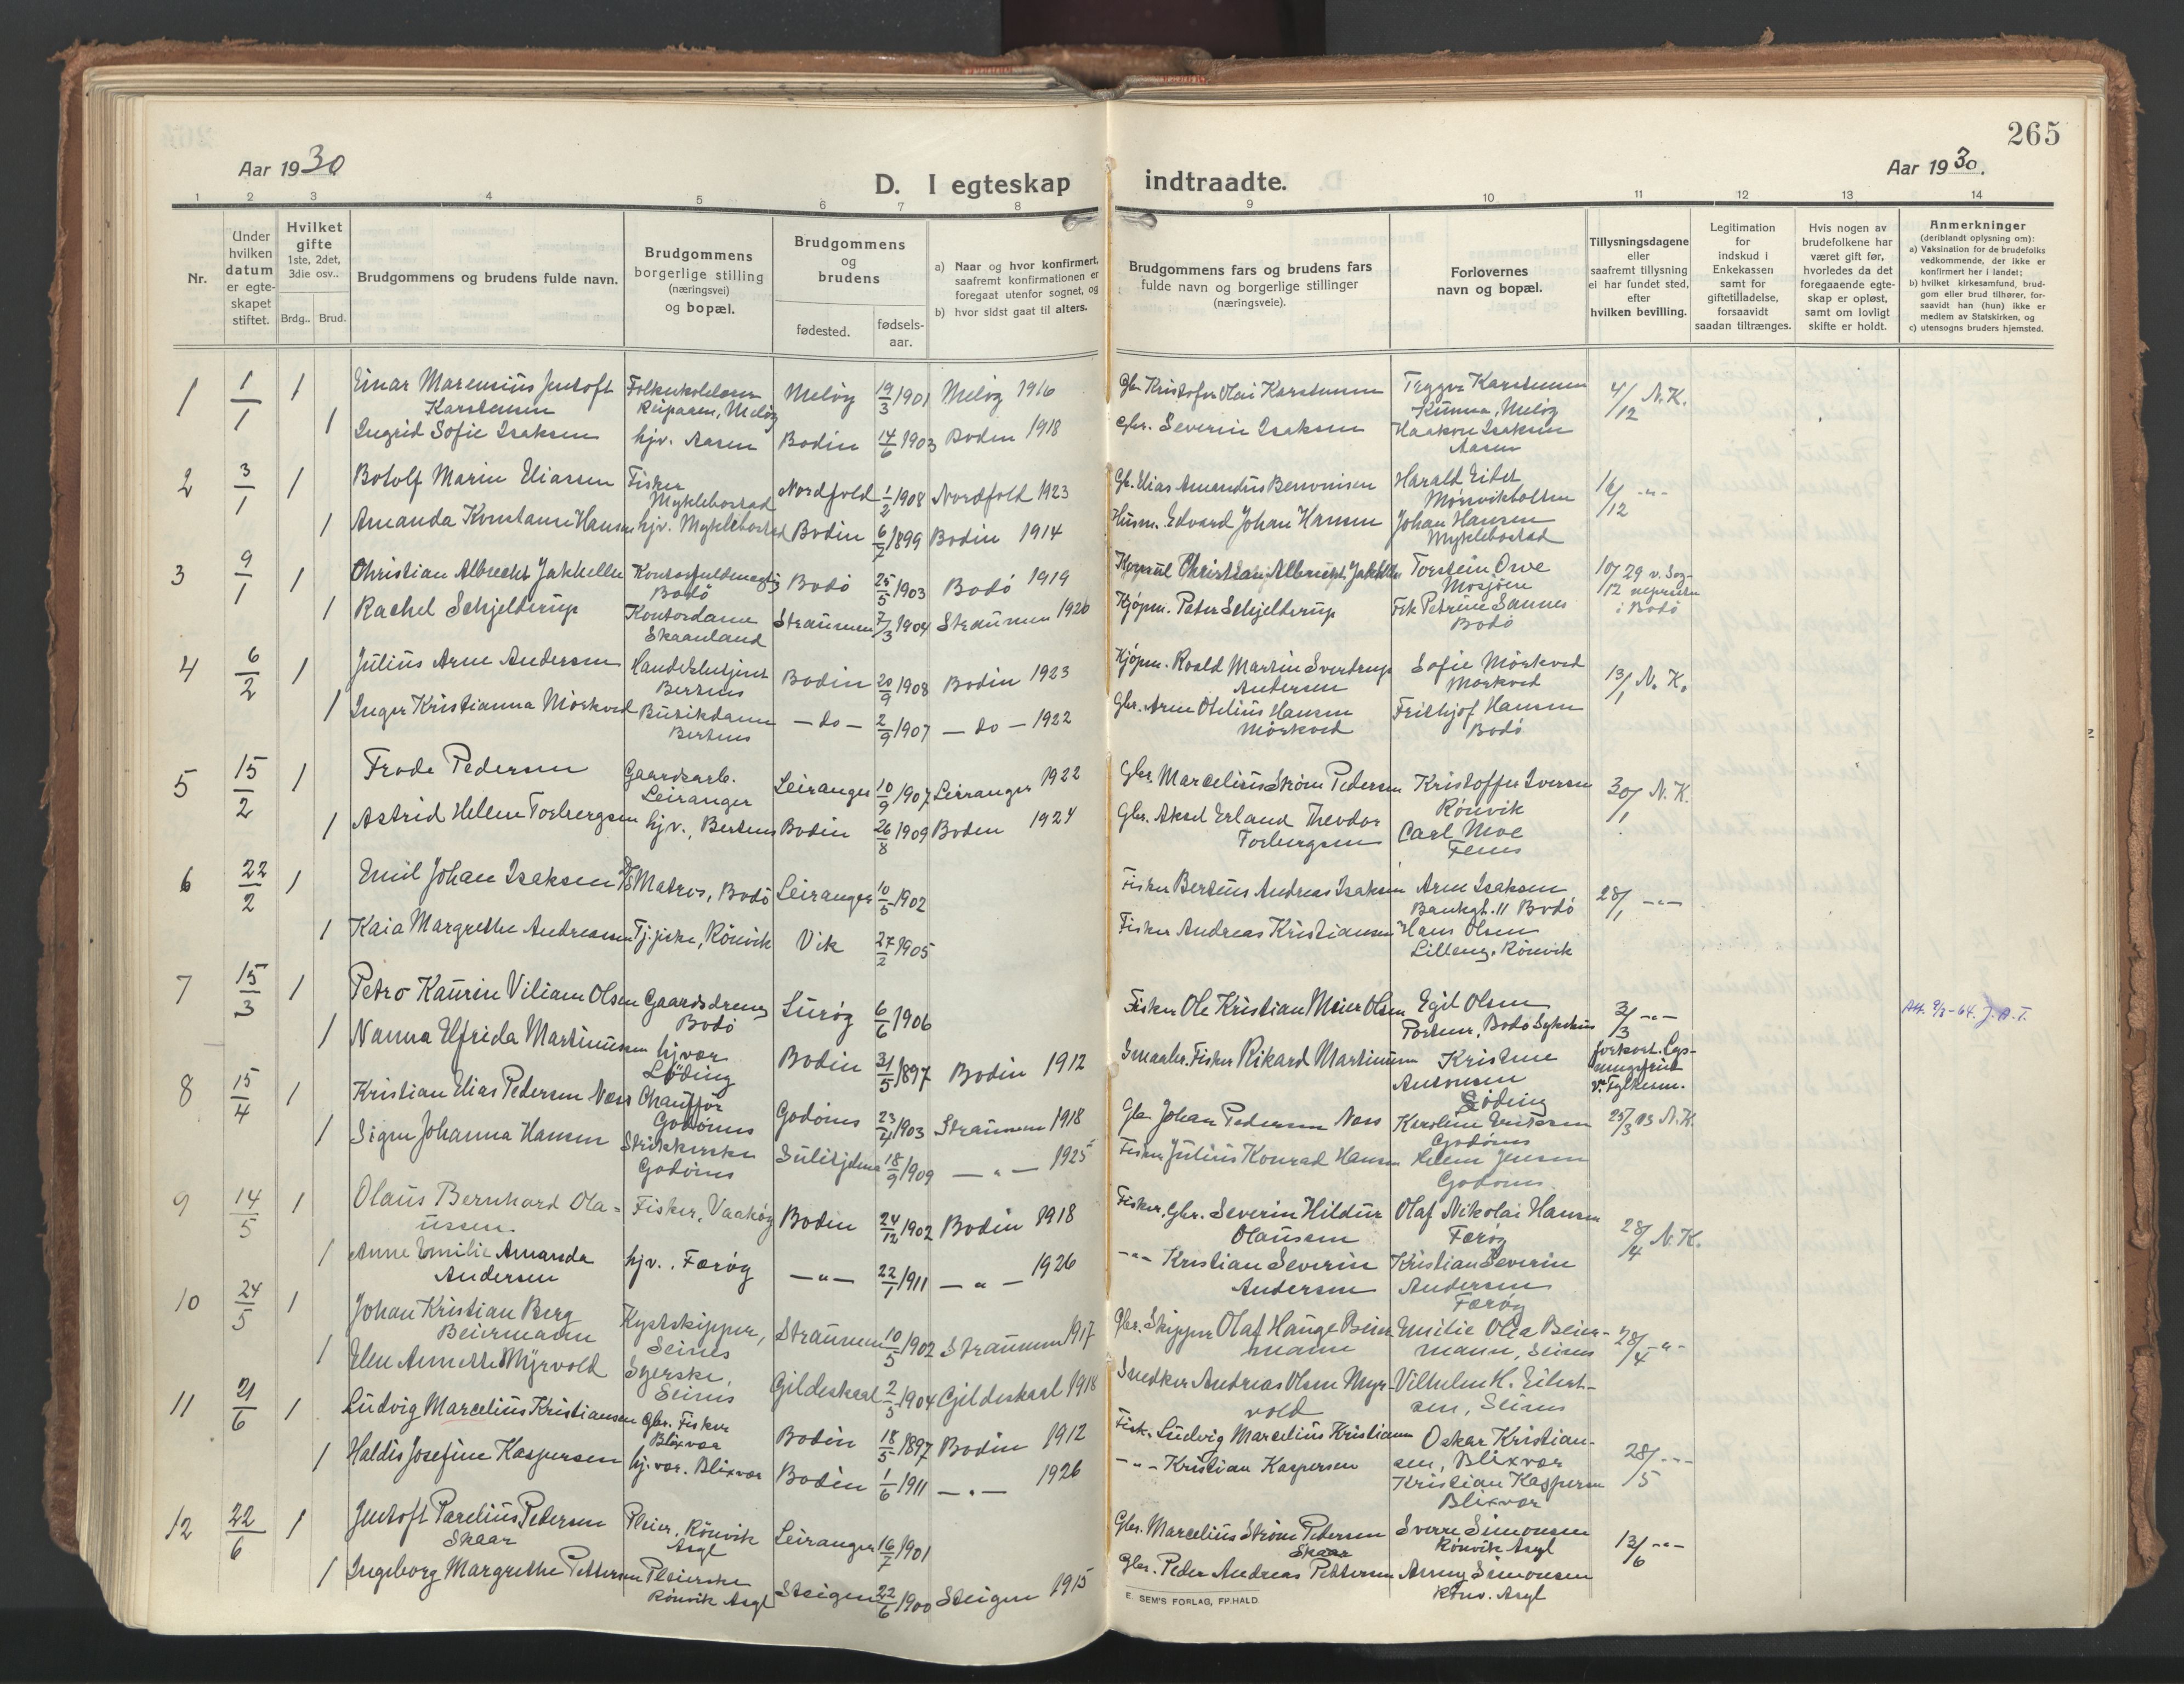 265
Aar 1930
Aar 1930.
D. I egteskap indtraadte.
1 2 3 4 5 6 7 8 9 10 11 12 13 14
Nr.
Under hvilken datum er egteskapet stiftet.
Hvilket gifte 1ste, 2det, 3die osv..
Brdg.. Brud.
Brudgommens og brudens fulde navn.
Brudgommens borgerlige stilling (næringsvei) og bopæl.
Brudgommens og brudens
fødested. fødsels-aar.
a) Naar og hvor konfirmert, saafremt konfirmationen er foregaat utenfor sognet, og
b) hvor sidst gaat til alters.
Brudgommens fars og brudens fars fulde navn og borgerlige stillinger (næringsveie).
Forlovernes navn og bopæl.
Tillysningsdagene eller saafremt tillysning ei har fundet sted, efter hvilken bevilling.
Legitimation for indskud i Enkekassen samt for giftetilladelse, forsaavidt saadan tiltrænges.
Hvis nogen av brudefolkene har været gift før, hvorledes da det foregaaende egteskap er opløst, samt om lovligt skifte er holdt.
Anmerkninger (deriblandt oplysning om):
a) Vaksination for de brudefolks vedkommende, der ikke er konfirmert her i landet;
b) hvilket kirkesamfund, brudgom eller brud tilhører, forsaavidt han (hun) ikke er medlem av Statskirken, og
c) utensogns bruders hjemsted.
1 1/1 1 Einar Marensius Jentoft Karstensen Folkeskolelærer Reipaaen, Meløy Meløy 19/3 1901 Meløy 1916 Gbr. Kristofer Olai Karstensen Karstensen Kunna, Meløy 4/12 N.K.
1 Ingrid Sofie Isaksen hjv. Aasen Bodin 14/6 1903 Bodin 1918 Gbr. Severin Isaksen Haakon Isaksen Aasen
2 3/1 1 Botolf Marin Eliassen Fisker Myklebostad Nordfold 1/2 1908 Nordfold 1923 Gb. Elias Amandus Benonisen Harald Mørsvikbotten 16/12 -"-
1 Amanda Konstanse Hansen hjv. Myklebostad Bodin 6/7 1899 Bodin 1914 Husm. Edvard Johan Hansen Johan Hansen Myklebostad
3 9/1 1 Christian Albrecht Jakhelln Kontorfuldmegtig Bodø Bodø 25/5 1903 Bodø 1919 Christian Albrecht Jakhelln Torstein Mosjøen 10/12 29 v. Sognepresten i Bodø
1 Rachel Schjelderup Kontordame Skaanland Straumen 7/3 1904 Straumen 1920 Kjøpm. Peter Schjelderup Frk Petrine Sannes Bodø
4 6/2 1 Julius Arne Andersen Handelsbetjent Bertnes Bodin 20/9 1908 Bodin 1923 Kjøpm. Roald Martin Sverdrup Andersen Sofie Mørkved Mørkved 13/1 N.K.
1 Inger Kristianna Mørkved Butikdame Bertnes - do - 2/9 1907 - do - 1922 Gbr. Arne Otelius Hansen Mørkved Frithjof Hansen Bodø
5 15/2 1 Frode Pedersen Gaardsarb. Leiranger Leiranger 10/9 1907 Leiranger 1922 Gbr. Marcelius Strøm Pedersen Kristoffer Iversen Rønvik 30/1 N.K.
1 Astrid Helene Torbergsen hjv., Bertnes Bodin 26/8 1909 Bodin 1924 Gbr. Aksel Erland Theodor Torbergsen Carl Moe Fenes
6 22/2 1 Emil Johan Isaksen Matros, Bodø Leiranger 10/5 1902 Fisker Bertius Andreas Isaksen Arne Isaksen Bankgt. 11 Bodø 28/1 -"-
1 Kaia Margrethe Andreassen Tj.pike, Rønvik Vik 27/2 1905 Fisker Andreas Kristiansen Hans Olsen Lilleng, Rønvik
7 15/3 1 Petro Kaurin Viliam Olsen Gaardsdreng Bodø Lurøy 6/6 1906 Fisker Ole Kristian Meier Olsen Egil Olsen Portner, Bodø Sykehus 3/3 -"-
1 Nanna Elfrida Martinussen hj.vær. Løding Bodin 31/5 1897 Bodin 1912 Fisker Rikard Martinussen Kristine Antonsen Løding forkort. Lysningsfrist v. Fylkesm. J.A.T.
8 15/4 1 Kristian Elias Pedersen Næss Chauffør Godønes Godønes 23/4 1903 Straumen 1918 Gbr Johan Pedersen Næss Karoline Eriksen Godønes 25/3 N.K.
1 Signe Johanna Hansen Strikkerske Godønes Sulitjelma 18/9 1909 - " - 1925 Fisker Julius Konrad Hansen Helene Jensen Godønes
9 14/5 1 Olaus Bernhard Olaussen. Fisker, Vaakøy Bodin 24/12 1902 Bodin 1918 Fisker, Gbr. Severin Hildur Olausen Olaf Nikolai Hansen Færøy 28/4 N.K.
1 Anne Emilie Amanda Andersen hjv., Færøy -"- 22/1 1911 - " - 1926 -"- Kristian Severin Andersen Kristian Severin Andersen Færøy
10 24/5 1 Johan Kristian Berg Beiermann Kystskipper, Seines Straumen 10/5 1902 Straumen 1917 Gbr. Skipper Olaf Hauge Beiermann Emilie Olea Beiermann, Seines 28/4 -"-
1 Elen Annette Myrvold Syerske, Seines Gildeskaal 2/5 1904 Gildeskaal 1918 Snedker Andreas Olsen Myrvold Vilhelm H. Eilertsen, Seines
11 21/6 1 Ludvig Marcelius Kristiansen Gbr. Fisker Blixvær Bodin 18/5 1897 Bodin 1912 Fisk. Ludvig Marcelius Kristiansen Oskar Kristiansen, Blixvær 28/5 -"-
1 Haldis Josefine Kaspersen hj.vær. Blixvær Bodin 1/6 1911 -"- 1926 -"- Kristian Kaspersen Kristian Kaspersen Blixvær
12 22/6 1 Jentoft Parelius Pedersen Skaar Pleier, Rønvik Asyl Leiranger 16/7 1901 Gbr. Marcelius Strøm Pedersen Skaar Sverre Simonsen Rønvik Asyl 13/6 -"-
1 Ingeborg Margrethe Pettersen Pleierske Rønvik Asyl Steigen 22/6 1900 Steigen 1915 Gbr. Peder Andreas Pettersen Anny Simonsen Rønv. Asyl
E. SEM'S FORLAG, FR.HALD